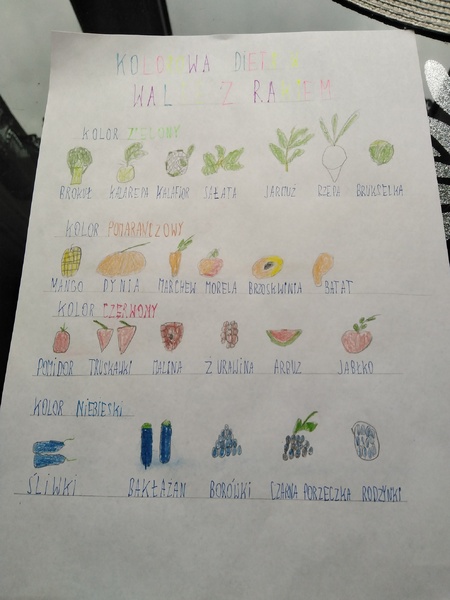 KOLOROWA DIETA
WALCZY Z RAKIEM
KOLOR ZIELONY
BROKUŁ KALAREPA KALAFIOR SAŁATA JARMUŻ RZEPA BRUKSELKA
KOLOR POMARAŃCZOWY
MANGO DYNIA MARCHEW MORELA BRZOSKWINIA BATAT
KOLOR CZERWONY
POMIDOR TRUSKAWKI MALINA ŻURAWINA ARBUZ JABŁKO
KOLOR NIEBIESKI
ŚLIWKI BAKŁAŻAN BORÓWKI CZARNA PORZECZKA RODZYNKI